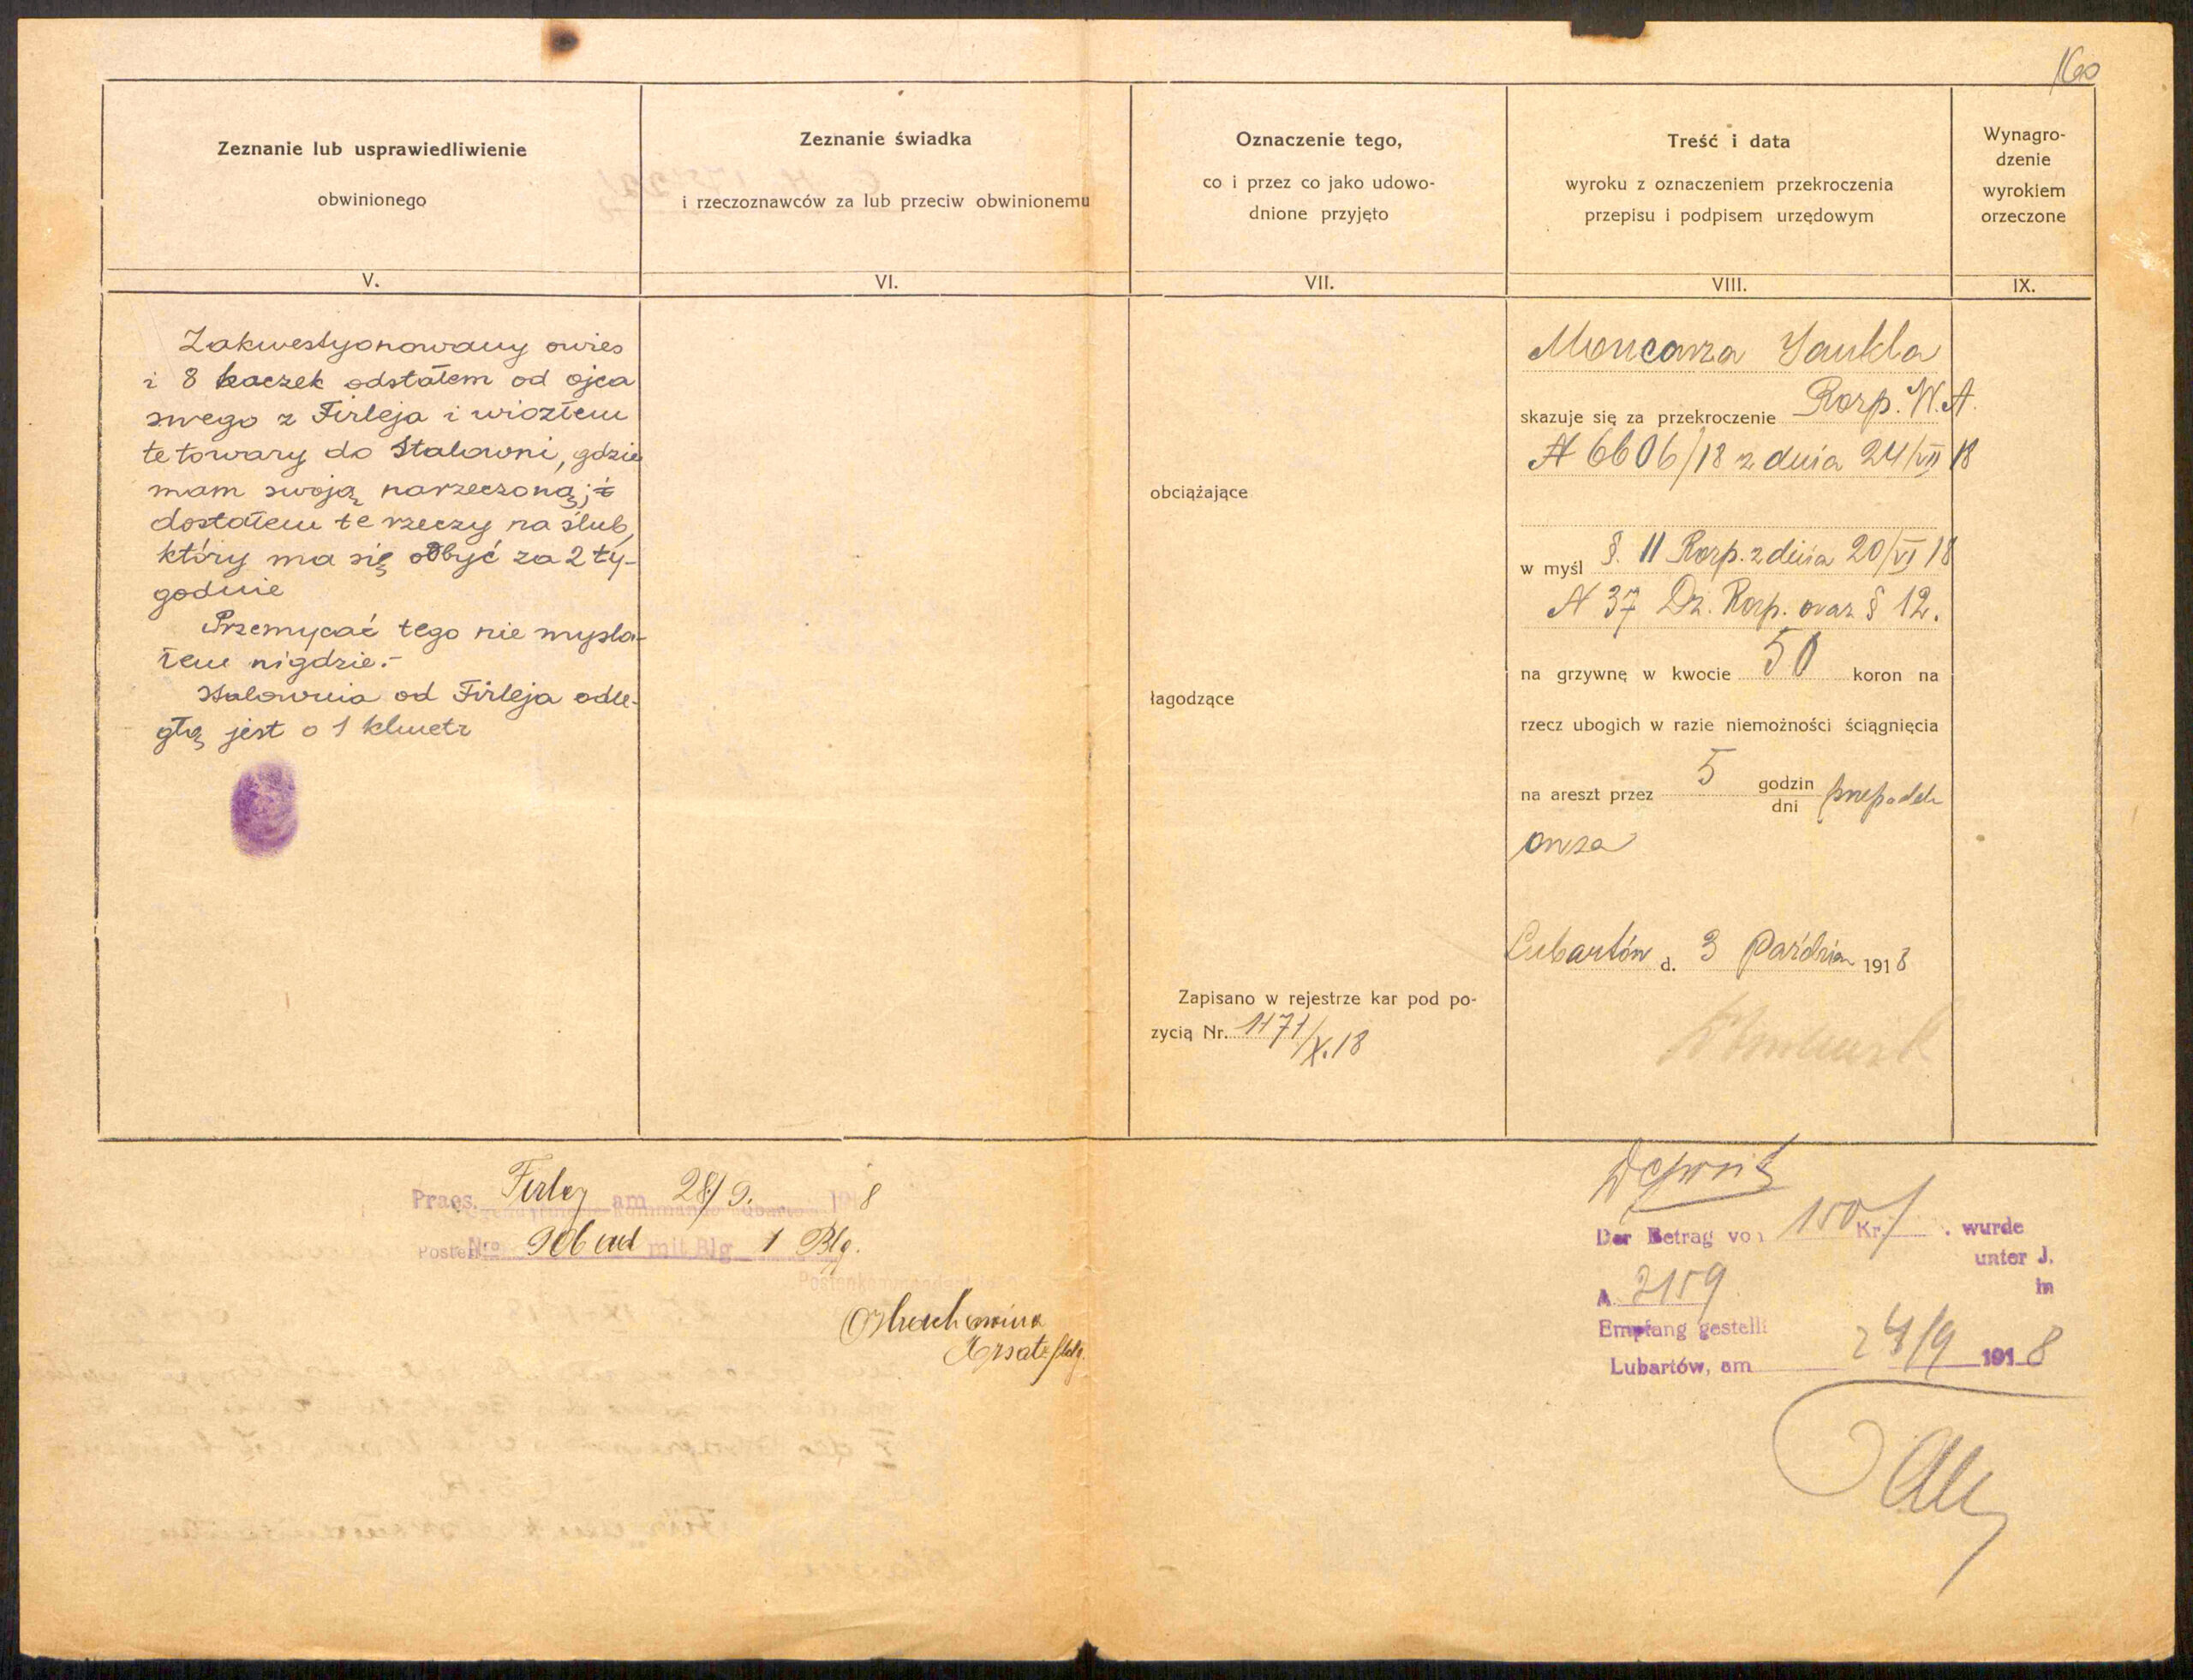 160
Zeznanie lub usprawiedliwienie
obwinionego
V.
Zakwestyonowany owies
i 8 kaczek odstałem od ojca
swego z Firleja i wiozłem
te towary do Stalowni, gdzie
mam swoją narzeczoną;
dostałem te rzeczy na ślub,
który ma się odbyć za 2 ty-
godnie
Przemycać tego nie mysla-
łem nigdzie.-
Stalownia od Firleja odle-
głą jest o 1 klmetr
Zeznanie świadka
i rzeczoznawców za lub przeciw obwinionemu
VI.
Oznaczenie tego,
co i przez co jako udowo-
dnione przyjęto
VII.
obciążające
łagodzące
Zapisano w rejestrze kar pod po-
zycią Nr. 1171/X.18
Treść i data
wyroku z oznaczeniem przekroczenia
przepisu i podpisem urzędowym
VIII.
Moncarza Jankla
skazuje się za przekroczenie Rozp. W.A.
N 6606/18 z dnia 24/VII 18
w myśl §. 11 Rozp. z dnia 20/VI 18
N 37 Dz. Rozp. oraz § 12.
na grzywnę w kwocie 50 koron na
rzecz ubogich w razie niemożności ściągnięcia
na areszt przez 5 godzin
dni
Lubartów d. 3 Paździer 1918
Wynagro-
dzenie
wyrokiem
orzeczone
IX.
Praes. Firley am 28/9. 1918
Posten Nro mit Blg 1 Blg.
Der Betrag von 150 Kr. wurde
unter J.
A. 2159 in
Empfang gestellt
Lubartów, am 24/9 1918